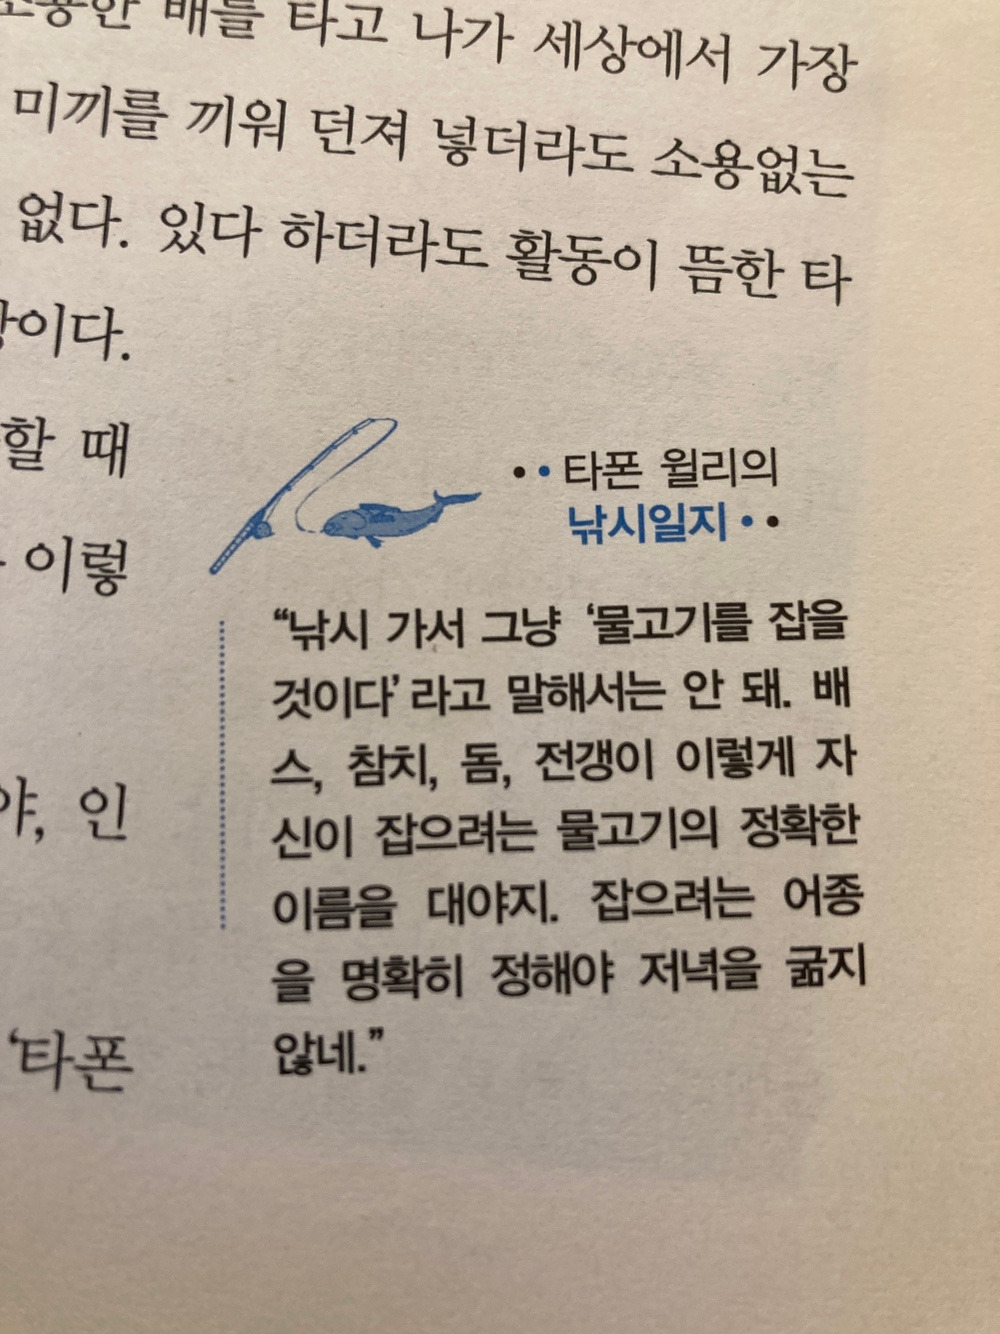 배를 타고 나가 세상에서 가장
미끼를 끼워 던져 넣더라도 소용없는
없다. 있다 하더라도 활동이 뜸한 타
이다.
할 때
이렇
야, 인
‘타폰
••타폰 윌리의
낚시일지••
“낚시 가서 그냥 ‘물고기를 잡을
것이다’라고 말해서는 안 돼. 배
스, 참치, 돔, 전갱이 이렇게 자
신이 잡으려는 물고기의 정확한
이름을 대야지. 잡으려는 어종
을 명확히 정해야 저녁을 굶지
않네.”